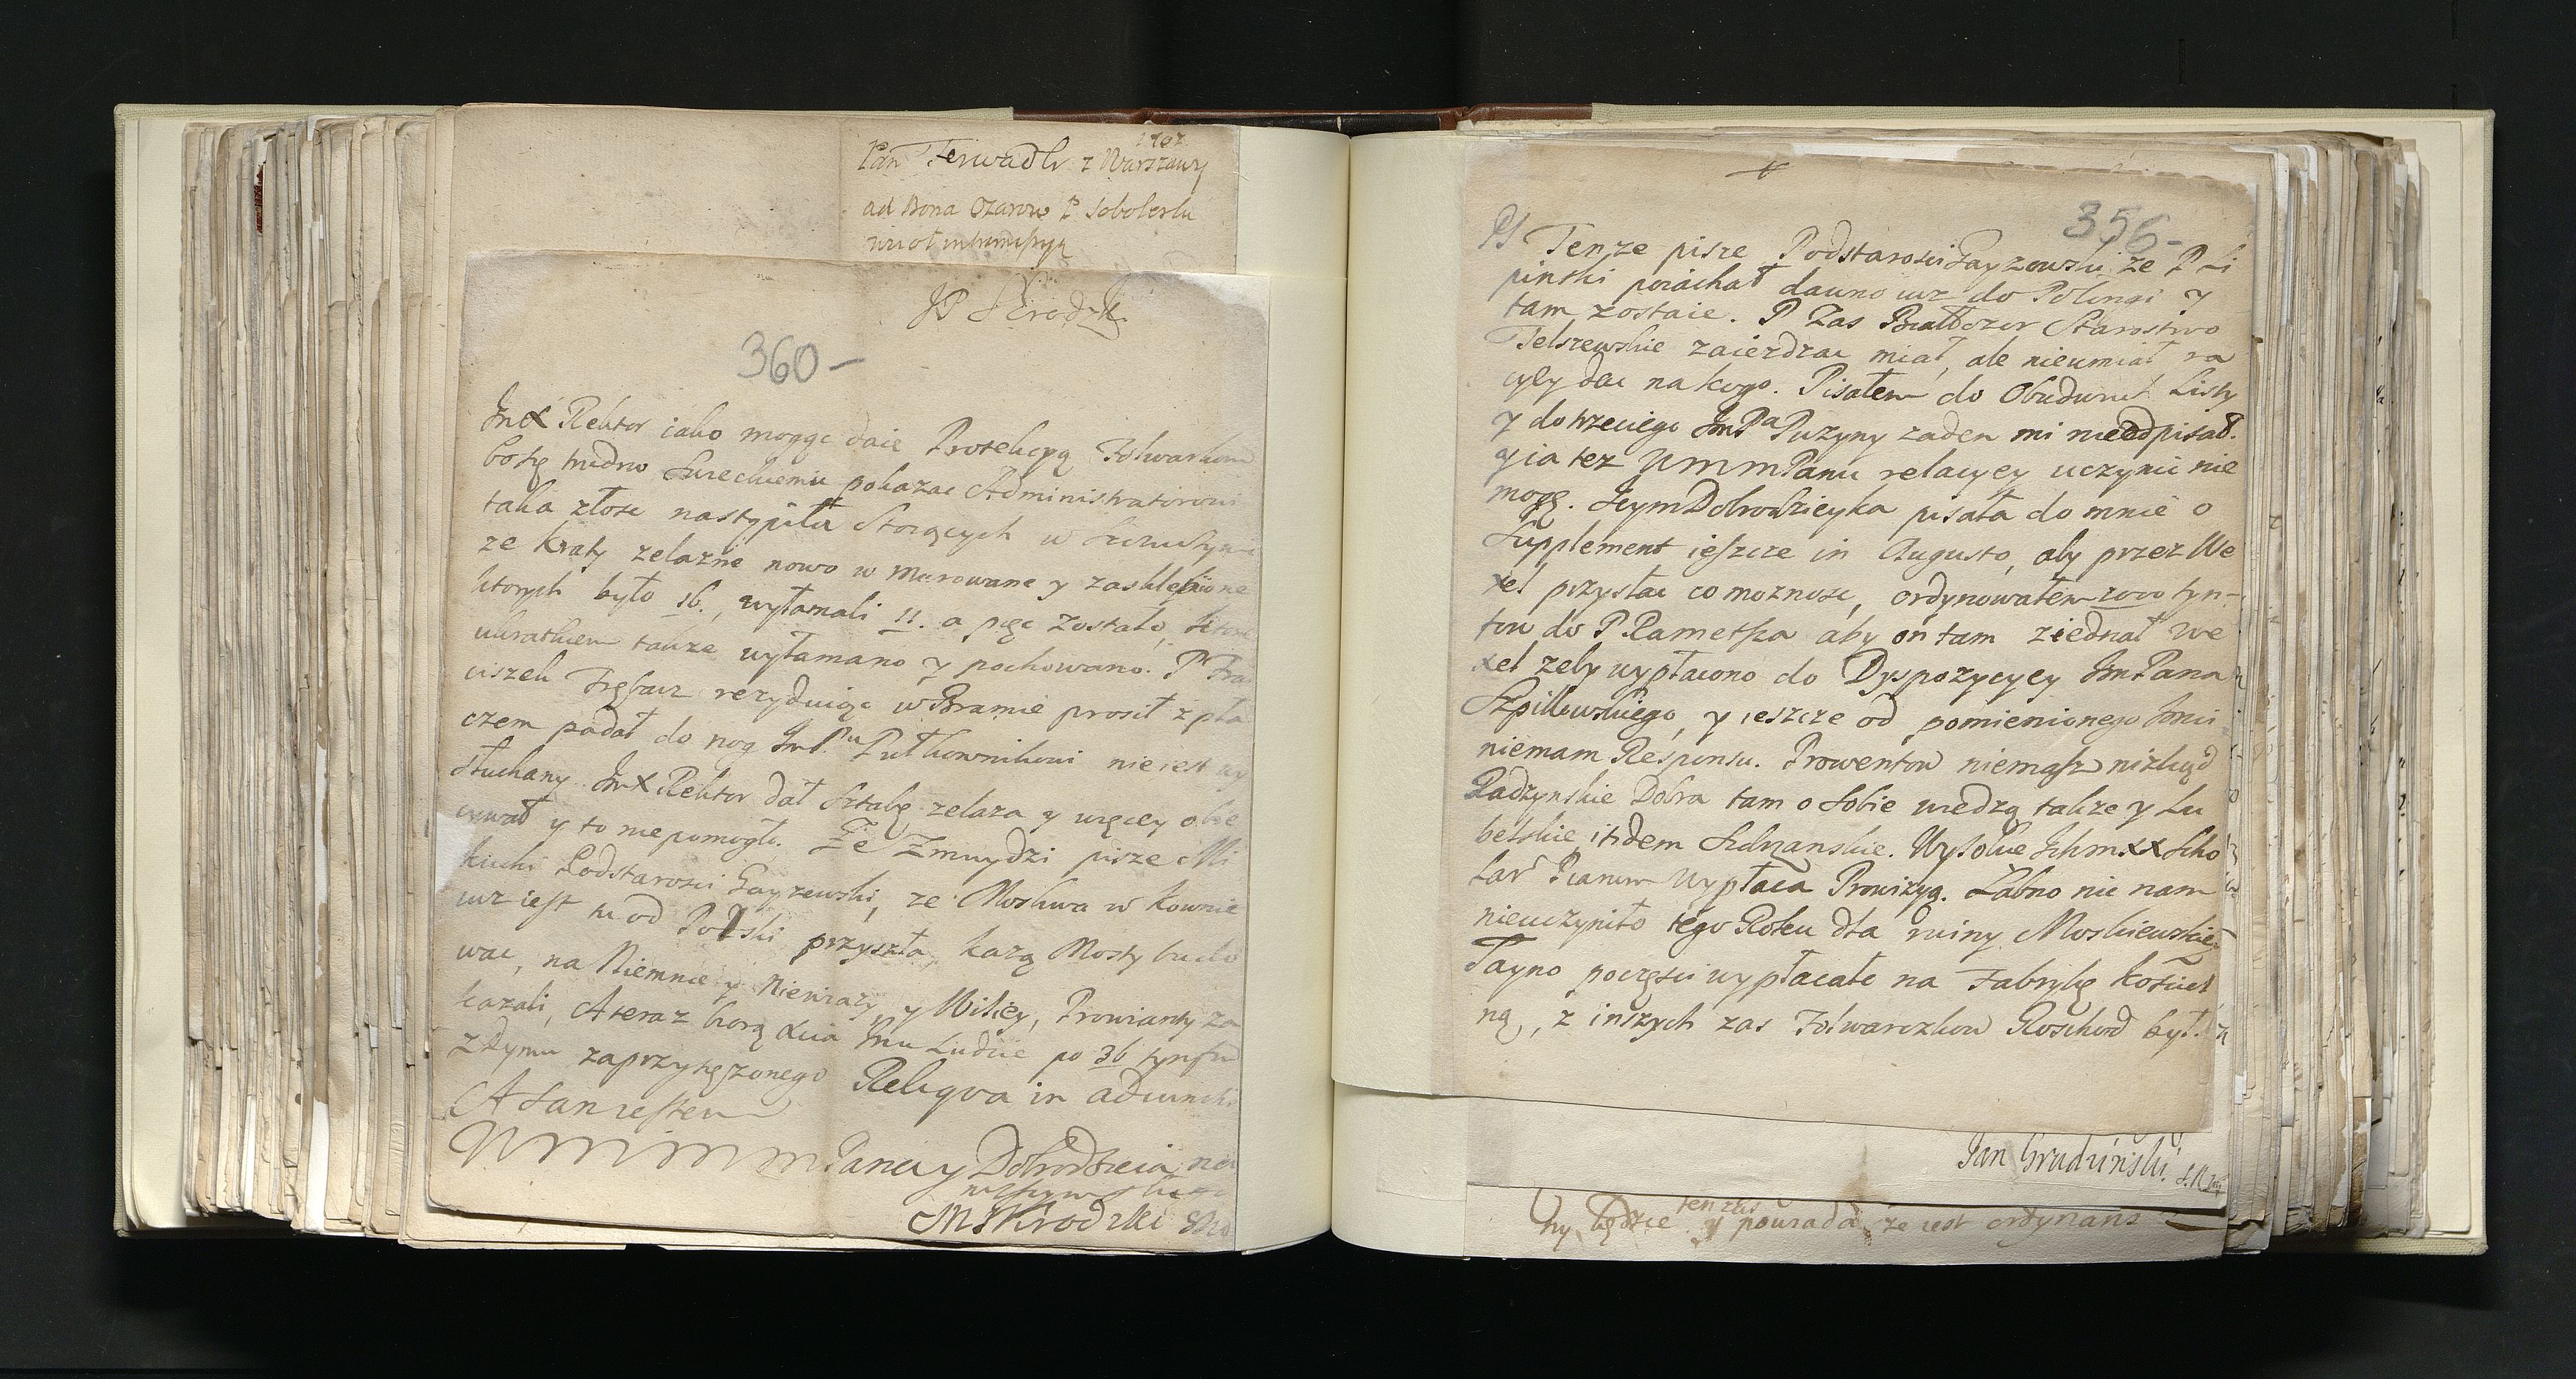 1707
Pan Ferwadh z Warszawy
ad Bona Ozarow P Sobolesku
JP Skrodzk.
360-
JmX Rektor iako mogąc daie Protekcyą Folwarkom
bo się trudno Szwedkiemu pokazac Administratorowi
taka złosc nastąpiła Stoiących w
ze Kraty zelazne nowo w murowane y zasklepione
ktorych było 16., wyłamali 11. a pięc zostało,
ukratkiem takze wyłamano y pochowano. P Fran
ciszek Trębacz rezyduiąc w Bramie prosił z pła
czem padał do nog JmPnu Pułkownikowi nie iest wy
słuchany. JmX Rektor dał Sztabę zelaza y więcey obie
cował y to nie pomogło. Ze Zmuydzi pisze Mi
Podstarosci Gayzewski, ze Moskwa w Kownie
iuz iest tu od Polski przyszła, kazą Mosty budo
wac, na Niemnie y Niewiazy, y Wiliey, Prowianty za
kazali, A teraz biorą Xcia Jmci Ludzie po 36 tynfow
z dymu zaprzysięzonego Reliqva in adiunctis
A Sam iestem
WmmmmPana y Dobrodzieia na
MSkrodzki
356-
PS Tenze pisze Podstarosci Gayzewski ze P Li
pinski poiachał dawno iuz do Polongi y
tam zostaie. P Zas Białłozor Starostwo
Telszewskie zaiezdzac miał, ale nieumiał ra
cyey dac na kogo. Pisałem do Obudwuch Listy
y do trzeciego JmPa Puzyny zaden mi nie odpisał.
y ia tez WmmPanu relacyey uczynic nie
mogę. JeymDobrodzieyka pisała do mnie o
Supplement ieszcze in Augusto, aby przez We
xel przysłac co moznosc, ordynowałem 2000 tyn-
fow do P. Rametka aby on tam ziednał We
xel zeby wypłacono do Dyspozycyey JmPana
Szpilewskiego, y ieszcze od pomienionego Jmci
niemam Responsu. Prowentow niemasz nizkąd
Radzynskie Dobra tam o Sobie wiedzą takze y Lu
belskie, itidem Sielzanskie. Wysokie JchmXX Scho
lar Piarum wypłaca Prowizyą. Łabno nic nam
nieuczyniło tego Roku dla ruiny Moskiewskiey
Tayno poczęsci wypłacało na Fabrykę Koscieł
ną, z inszych zas Folwarczkow Roschod był.
Jan Grudziński.
tenzes
będzie y powiada, ze iest ordynans